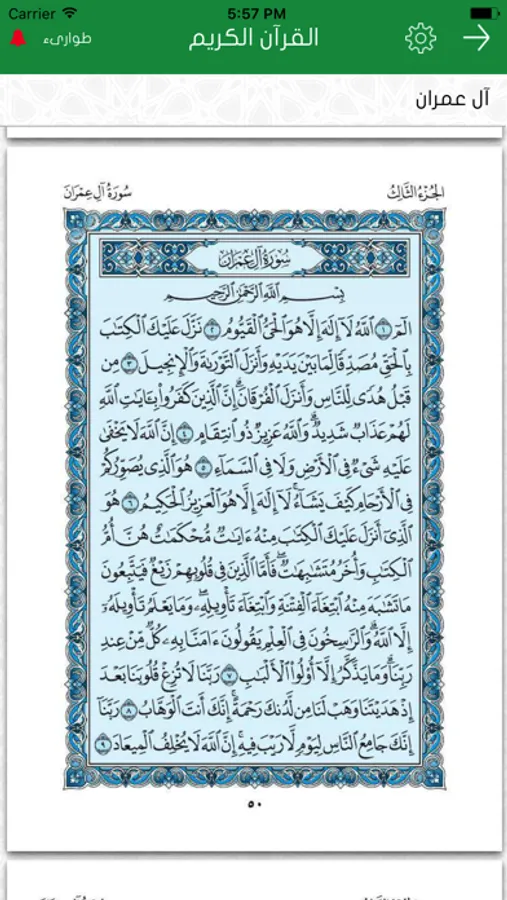 Carrier 5:57 PM
طوارىء القرآن الكريم
آل عمران
الجُزْءُ الثَّالِثُ سُورَةُ آلِ عِمْرَانَ
سُورَةُ آلِ عِمْرَانَ
بِسْمِ اللَّهِ الرَّحْمَٰنِ الرَّحِيمِ
الٓمٓ ١ ٱللَّهُ لَآ إِلَٰهَ إِلَّا هُوَ ٱلْحَىُّ ٱلْقَيُّومُ ٢ نَزَّلَ عَلَيْكَ ٱلْكِتَٰبَ
بِٱلْحَقِّ مُصَدِّقًا لِّمَا بَيْنَ يَدَيْهِ وَأَنزَلَ ٱلتَّوْرَىٰةَ وَٱلْإِنجِيلَ ٣ مِن
قَبْلُ هُدًى لِّلنَّاسِ وَأَنزَلَ ٱلْفُرْقَانَ ۗ إِنَّ ٱلَّذِينَ كَفَرُوا۟ بِـَٔايَٰتِ ٱللَّهِ
لَهُمْ عَذَابٌ شَدِيدٌ ۗ وَٱللَّهُ عَزِيزٌ ذُو ٱنتِقَامٍ ٤ إِنَّ ٱللَّهَ لَا يَخْفَىٰ
عَلَيْهِ شَىْءٌ فِى ٱلْأَرْضِ وَلَا فِى ٱلسَّمَآءِ ٥ هُوَ ٱلَّذِى يُصَوِّرُكُمْ
فِى ٱلْأَرْحَامِ كَيْفَ يَشَآءُ ۚ لَآ إِلَٰهَ إِلَّا هُوَ ٱلْعَزِيزُ ٱلْحَكِيمُ ٦ هُوَ
ٱلَّذِىٓ أَنزَلَ عَلَيْكَ ٱلْكِتَٰبَ مِنْهُ ءَايَٰتٌ مُّحْكَمَٰتٌ هُنَّ أُمُّ
ٱلْكِتَٰبِ وَأُخَرُ مُتَشَٰبِهَٰتٌ ۖ فَأَمَّا ٱلَّذِينَ فِى قُلُوبِهِمْ زَيْغٌ فَيَتَّبِعُونَ
مَا تَشَٰبَهَ مِنْهُ ٱبْتِغَآءَ ٱلْفِتْنَةِ وَٱبْتِغَآءَ تَأْوِيلِهِۦ ۗ وَمَا يَعْلَمُ تَأْوِيلَهُۥٓ
إِلَّا ٱللَّهُ ۗ وَٱلرَّٰسِخُونَ فِى ٱلْعِلْمِ يَقُولُونَ ءَامَنَّا بِهِۦ كُلٌّ مِّنْ عِندِ
رَبِّنَا ۗ وَمَا يَذَّكَّرُ إِلَّآ أُو۟لُوا۟ ٱلْأَلْبَٰبِ ٧ رَبَّنَا لَا تُزِغْ قُلُوبَنَا بَعْدَ
إِذْ هَدَيْتَنَا وَهَبْ لَنَا مِن لَّدُنكَ رَحْمَةً ۚ إِنَّكَ أَنتَ ٱلْوَهَّابُ ٨ رَبَّنَآ
إِنَّكَ جَامِعُ ٱلنَّاسِ لِيَوْمٍ لَّا رَيْبَ فِيهِ ۚ إِنَّ ٱللَّهَ لَا يُخْلِفُ ٱلْمِيعَادَ ٩
٥٠